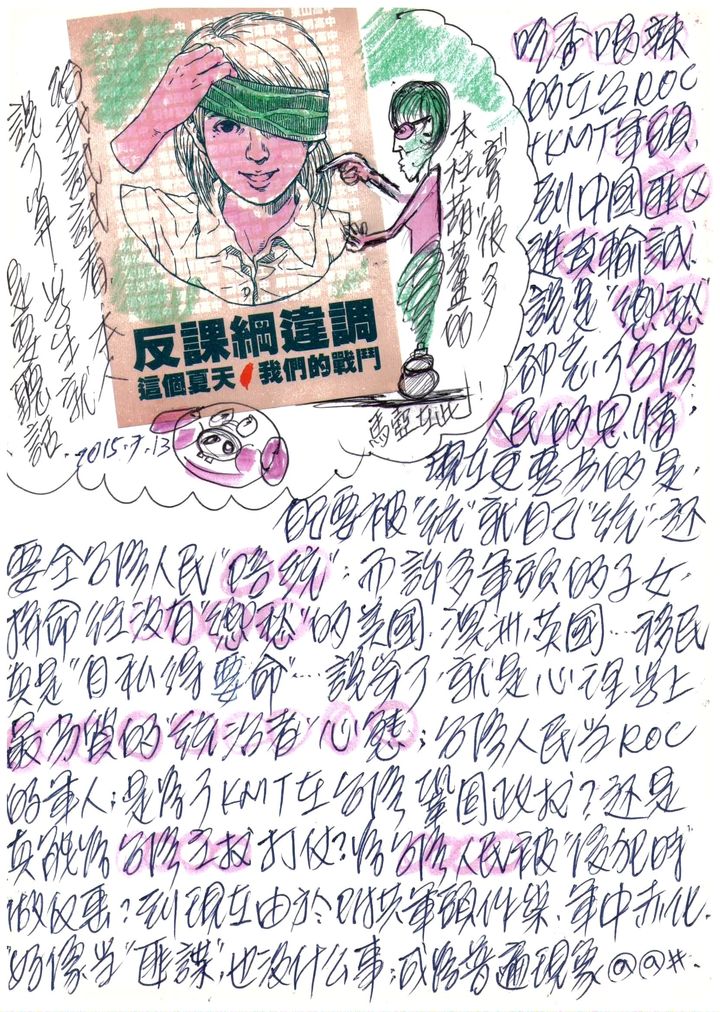 吃香喝辣
的在台ROC
+KMT軍頭,
到中國匪區
進貢輸誠.
說是"鄉愁"
卻忘了台灣
人民的恩情.
現在更惡劣的是,
要被"統"就自己"統" 還
要全台灣人民"陪統"; 而許多軍頭的子女,
拼命往沒有"鄉愁"的美國.澳洲.英國…移民
真是"自私得要命"… 說穿了 就是心理學上
最劣質的"統治者"心態; 台灣人民當ROC
的軍人; 是為了KMT在台灣鞏固政權? 還是
真能為台灣主权打仗? 為台灣人民被"侵犯時"
做反擊? 到現在由於附共軍頭作祟.軍中赤化.
"好像當"匪諜"也沒什么事; 成為普遍現象@@#.
反課綱違調
這個夏天 我們的戰鬥
2015.7.13
本社葫蘆的
"膏"很多
給我試試看,
說了算 學生就
是要聽話